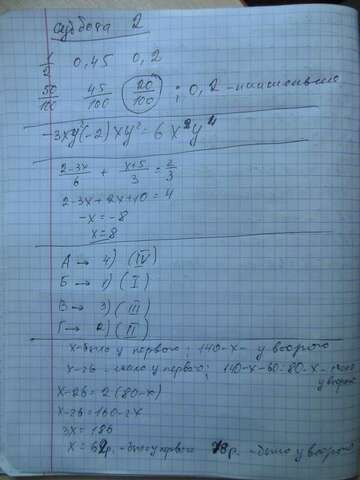 Суббота 2
1/2 0,45 0,2
50/100 45/100 20/100 ; 0,2 - наименьшее
-3xy²(-2)xy² = 6x²y⁴
2-3x/6 + x+5/3 = 2/3
2-3x+2x+10=4
-x=-8
x=8
А → 4) (IV)
Б → 1) (I)
В → 3) (III)
Г → 2) (II)
x-было у первого; 140-x- у второго
x-26 - стало у первого; 140-x-60=80-x- стало
у второй
x-26=2(80-x)
x-26=160-2x
3x=186
x=62р. - было у первого 78р. - было у второго